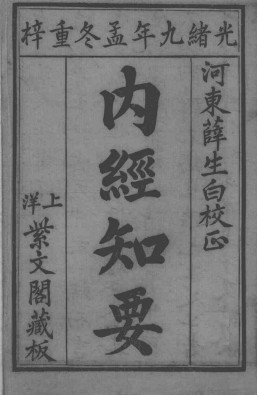 光緒九年孟冬重梓
河東薛生白校正
内經知要
上洋
紫文閣藏板